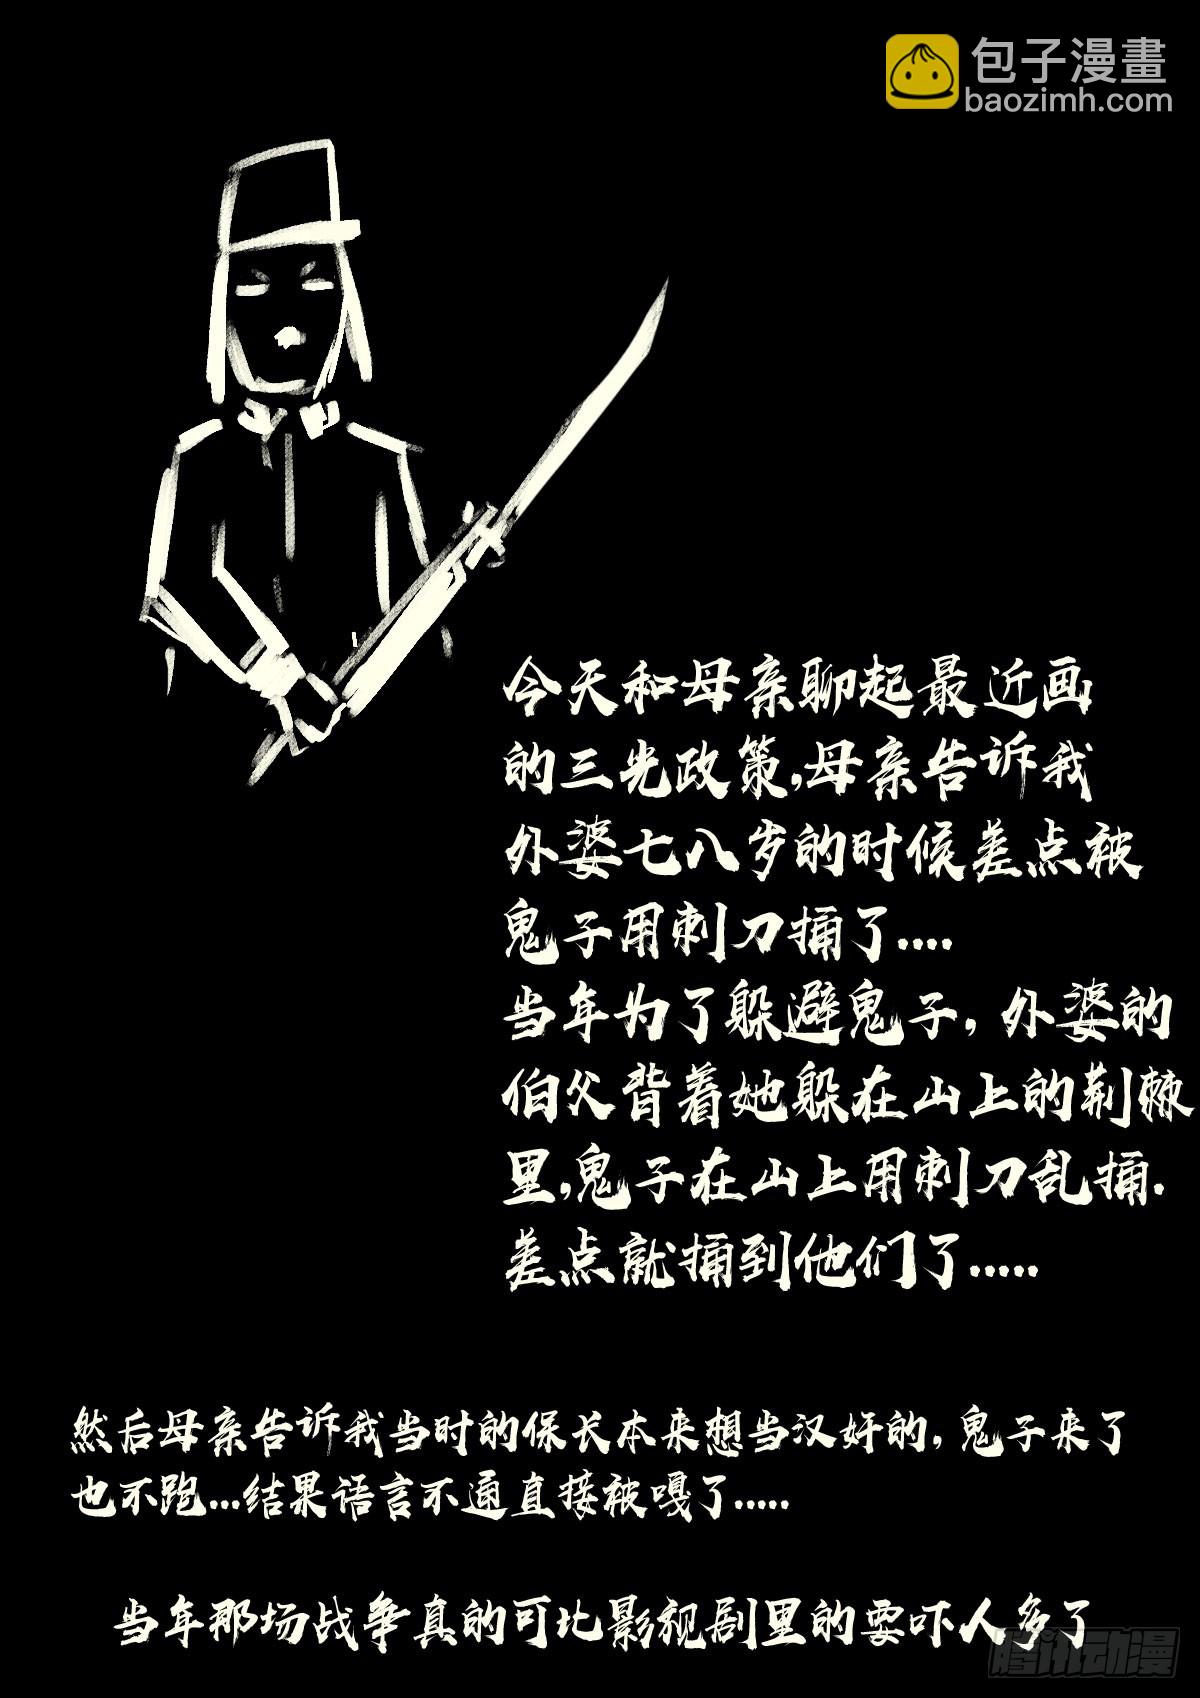 包子漫畫
baozimh.com
今天和母亲聊起最近画
的三光政策,母亲告诉我
外婆七八岁的时候差点被
鬼子用刺刀捅了....
当年为了躲避鬼子,外婆的
伯父背着她躲在山上的荆棘
里,鬼子在山上用刺刀乱捅.
差点就捅到他们了.....
然后母亲告诉我当时的保长本来想当汉奸的,鬼子来了
也不跑...结果语言不通直接被嘎了.....
当年那场战争真的可比影视剧里的要吓人多了
腾讯动漫